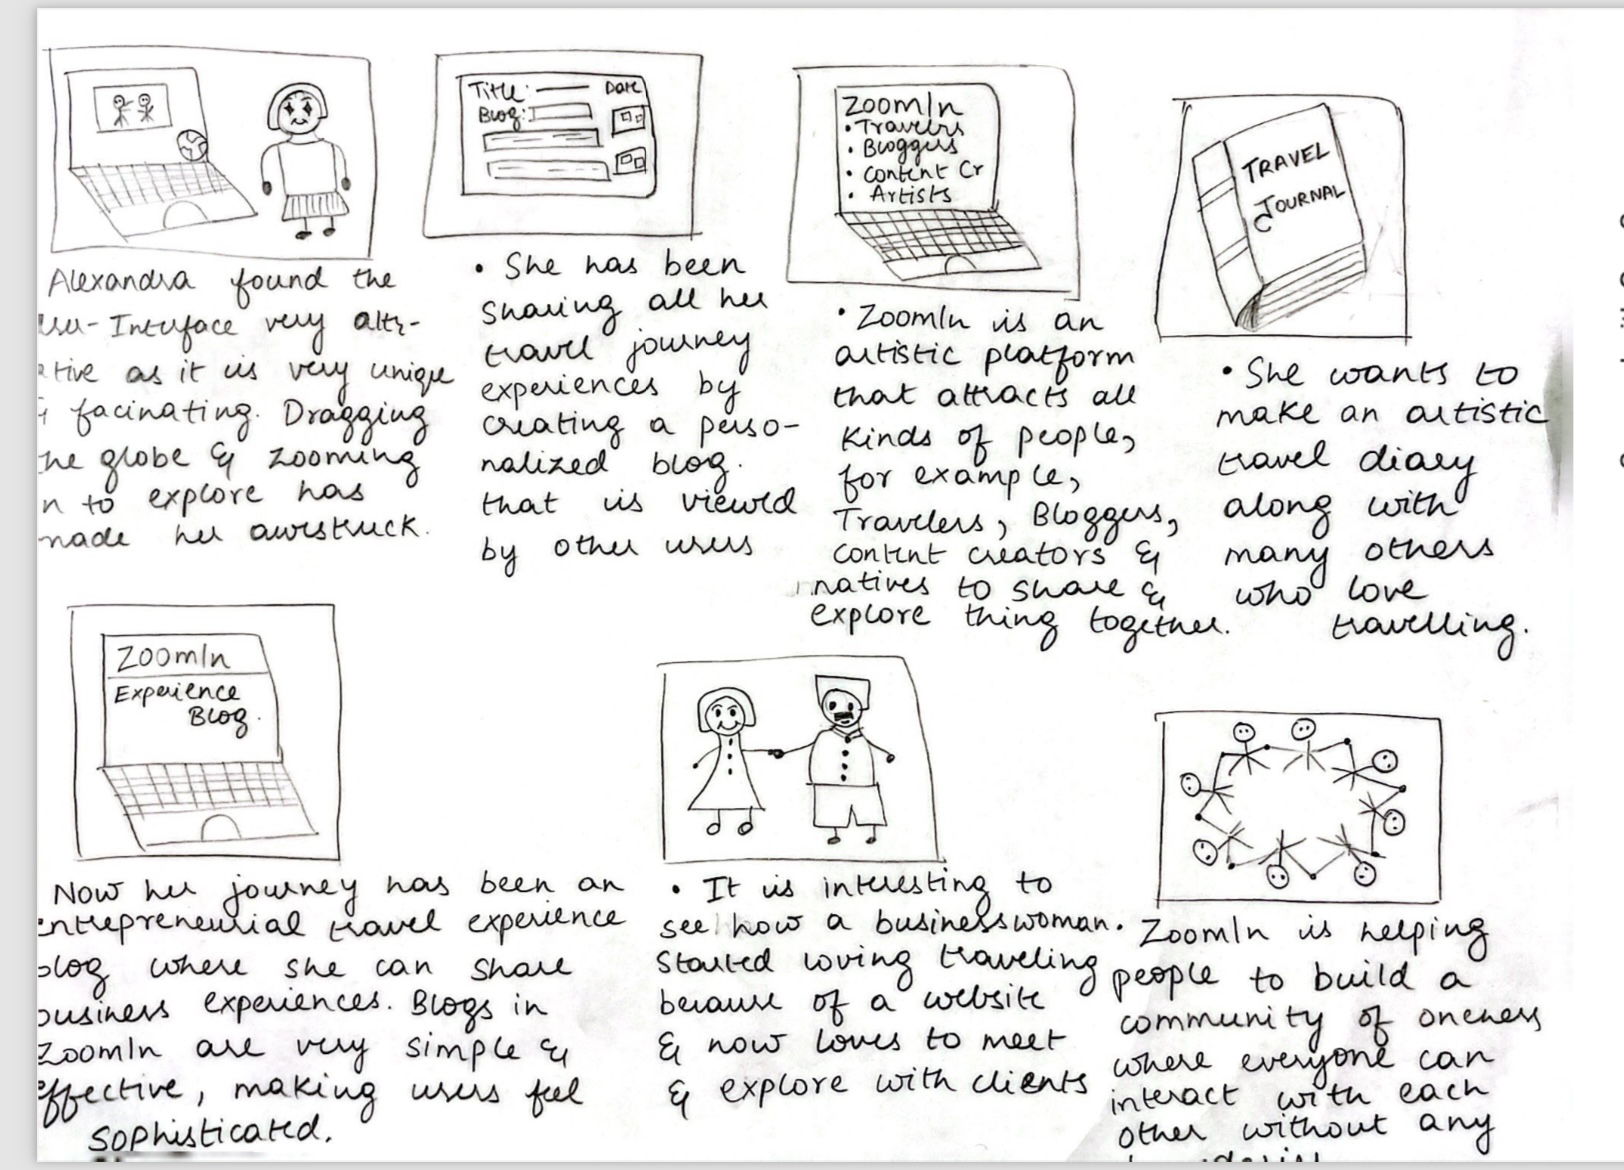 Title: Date
Blog:
ZoomIn
• Travelers
• Bloggers
• Content Cr
• Artists
TRAVEL
JOURNAL
Alexandra found the
-Interface very attr-
as it is very unique
& facinating. Dragging
globe & zooming
to explore has
her awestruck.
• She has been
Sharing all her
travel journey
experiences by
creating a perso-
nalized blog.
that is viewed
by other users
• ZoomIn is an
artistic platform
that attracts all
kinds of people,
for example,
Travelers, Bloggers,
content creators &
natives to share &
explore thing together.
• She wants to
make an artistic
travel diary
along with
many others
who love
travelling.
ZoomIn
Experience
Blog.
Now her journey has been an
entrepreneurial travel experience
blog where she can share
business experiences. Blogs in
ZoomIn are very simple &
effective, making users feel
sophisticated.
• It is interesting to
see how a businesswoman
started loving traveling
because of a website
& now loves to meet
& explore with clients
• ZoomIn is helping
people to build a
community of oneness
where everyone can
interact with each
other without any